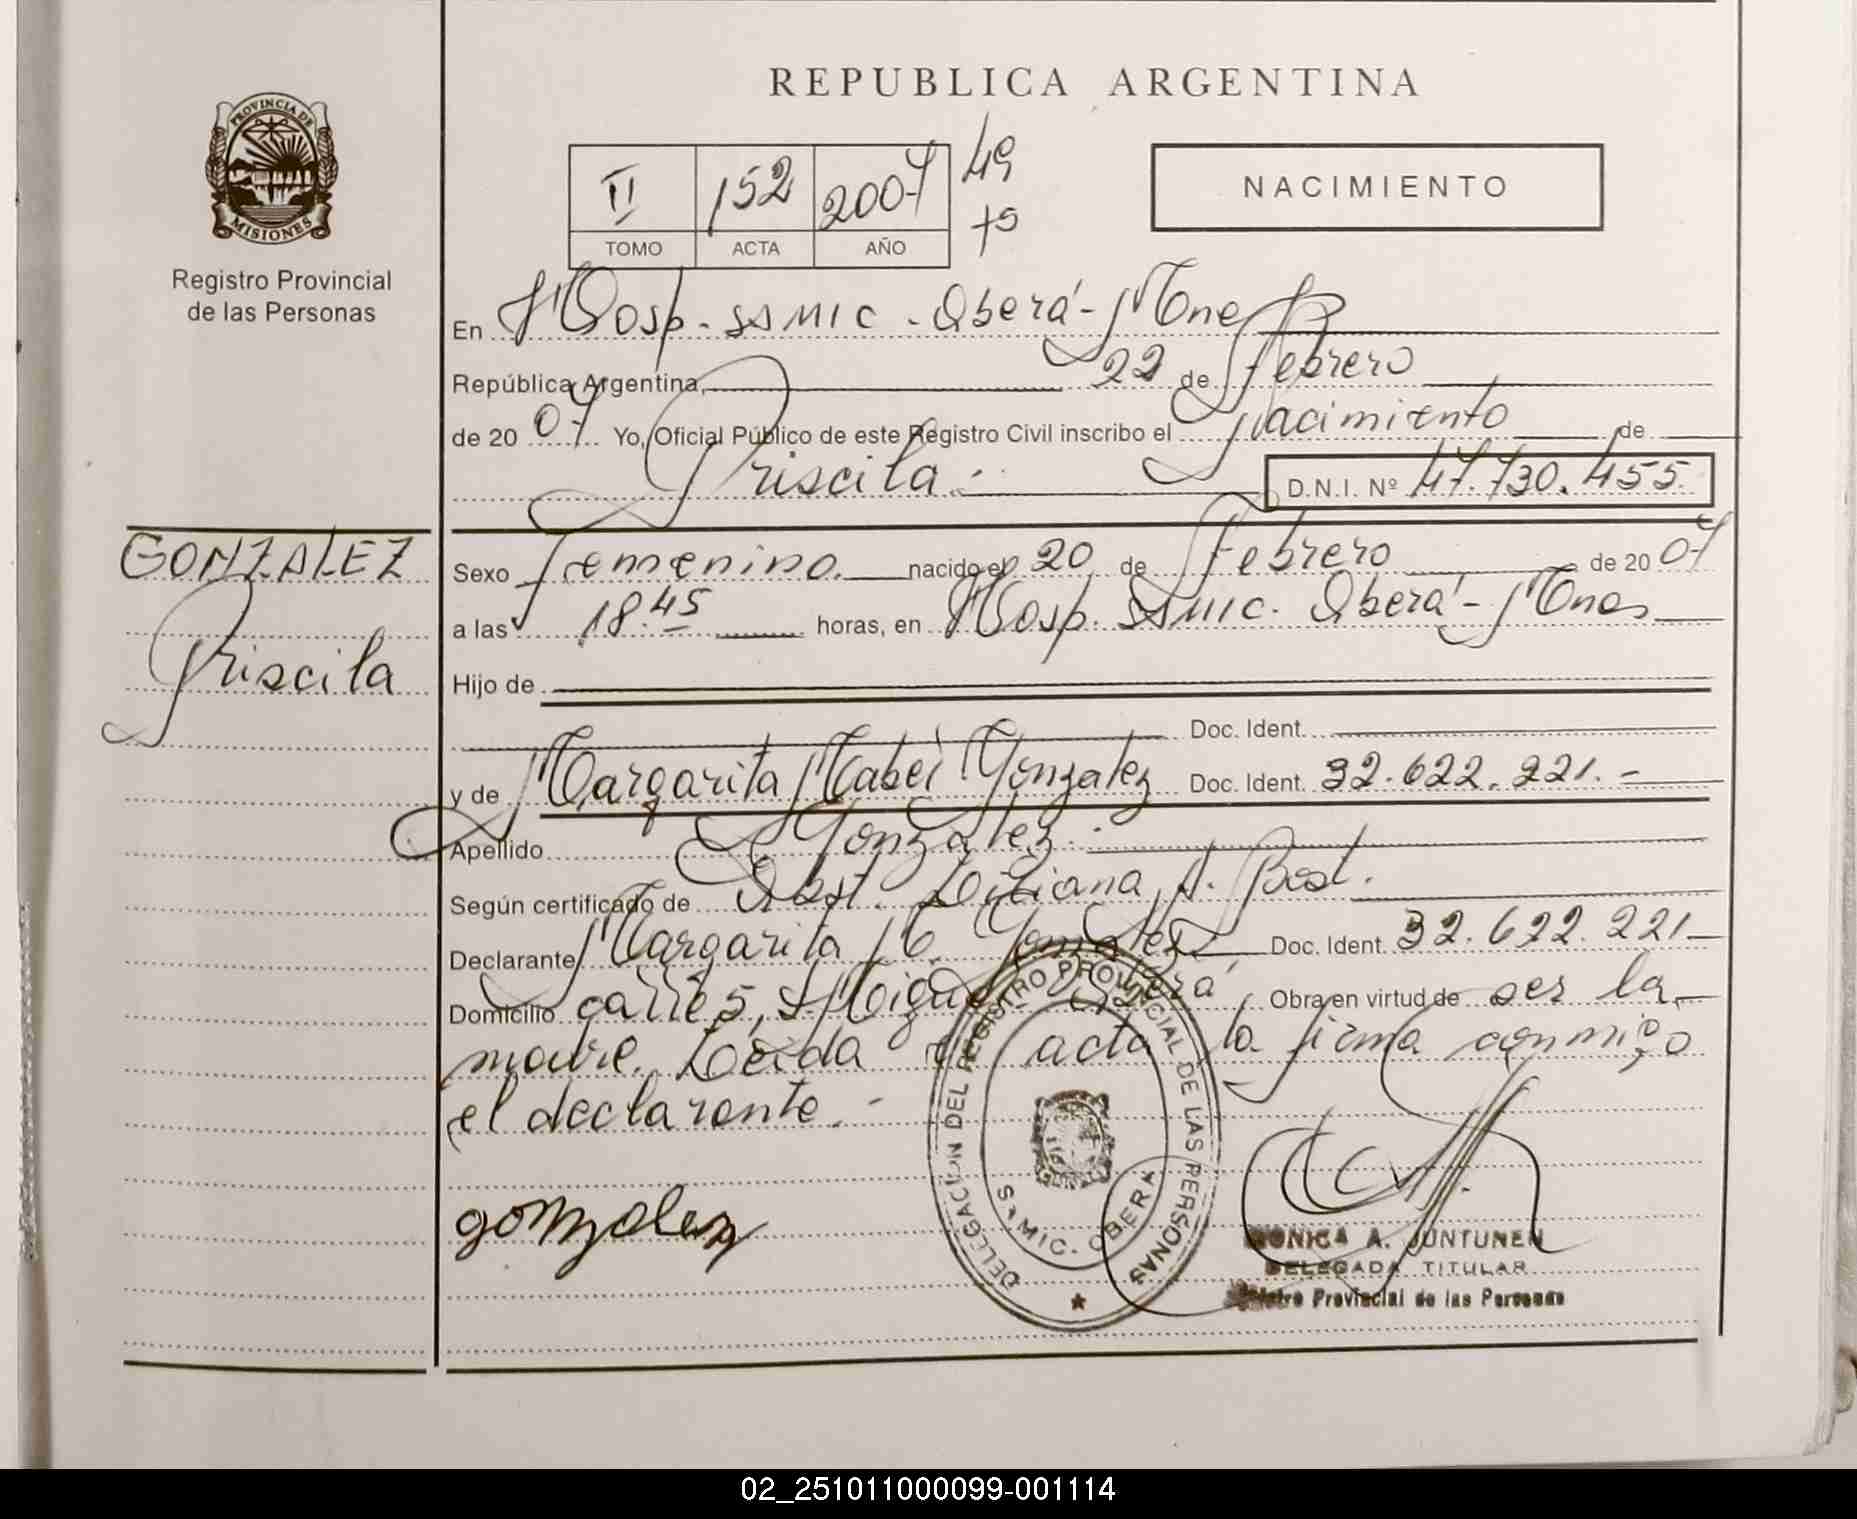 REPUBLICA ARGENTINA
PROVINCIA DE
MISIONES
Registro Provincial
de las Personas
II 152 2007 49
TOMO ACTA AÑO
NACIMIENTO
En Hosp. SSMIC. Oberá - Mnes
República Argentina, 22 de Febrero
de 20 07 Yo, Oficial Público de este Registro Civil inscribo el Nacimiento de
Priscila.- D.N.I. Nº 47.730.455.
GONZALEZ
Priscila
Sexo Femenino. nacido el 20 de Febrero de 20 07
a las 18.45 horas, en Hosp. SSMIC. Oberá - Mnes
Hijo de
Doc. Ident.
y de Margarita Mabel Gonzalez Doc. Ident. 32.622.221.-
Apellido Gonzalez.-
Según certificado de Obst. Liliana A. Best.
Declarante Margarita M. Gonzalez Doc. Ident. 32.622.221
Domicilio Oberá, Obra en virtud de ser la
madre. Leída el acta la firma conmigo
el declarante.-
gonzalez
DELEGACION DEL REGISTRO PROVINCIAL DE LAS PERSONAS
SAMIC. OBERA
MONICA A. JUNTUNEN
DELEGADA TITULAR
Registro Provincial de las Personas
02_251011000099-001114